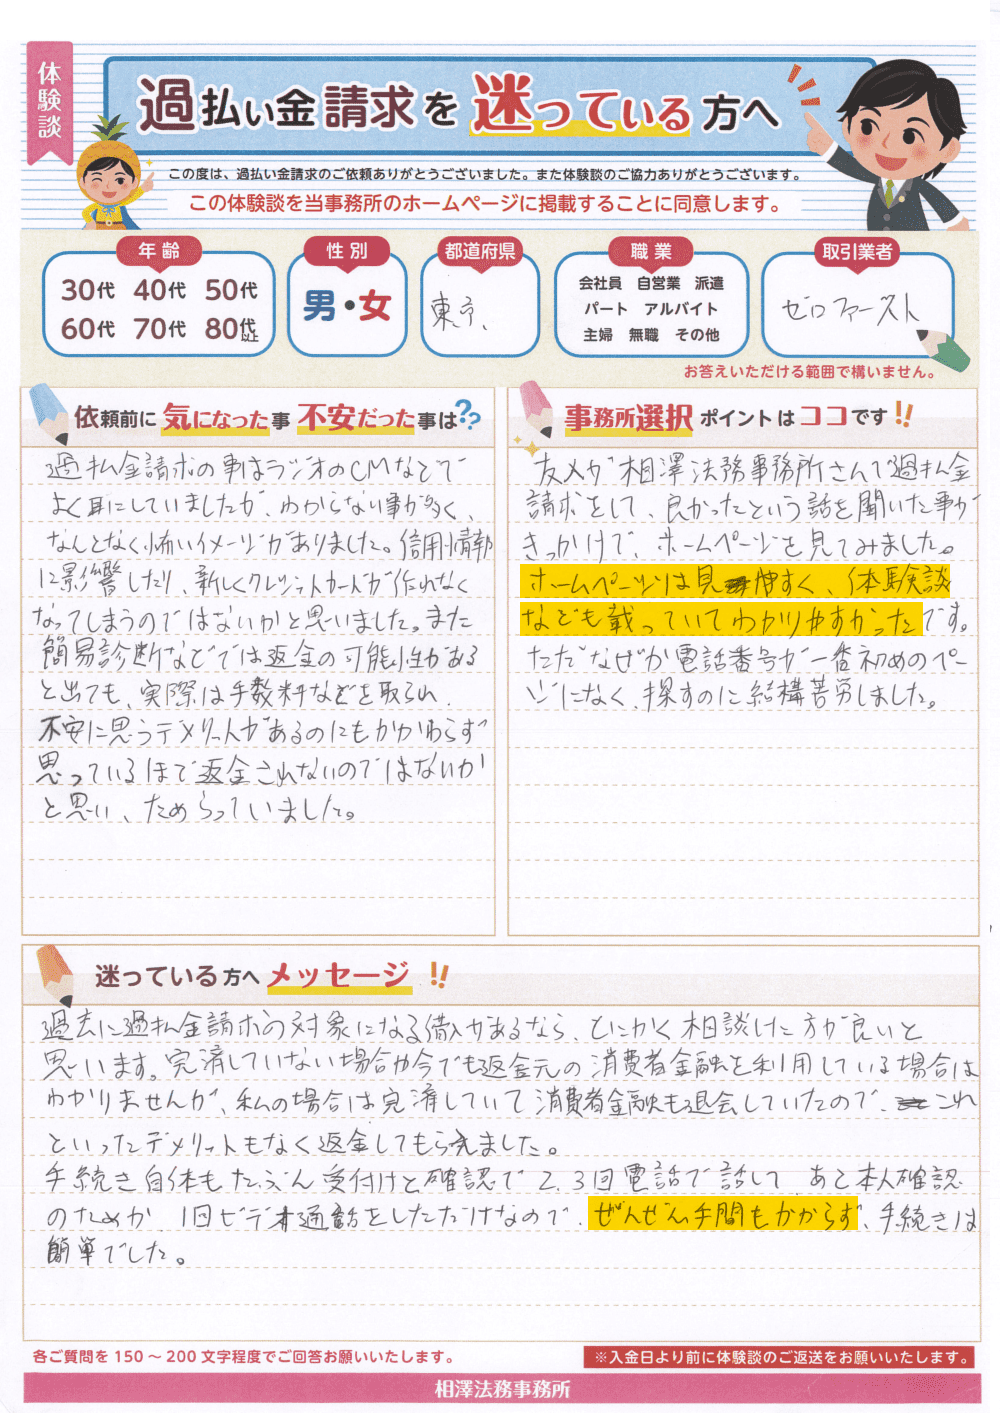 体験談
過払い金請求を迷っている方へ
この度は、過払い金請求のご依頼ありがとうございました。また体験談のご協力ありがとうございます。
この体験談を当事務所のホームページに掲載することに同意します。
年齢
30代 40代 50代
60代 70代 80代以上
性別
男・女
都道府県
東京、
職業
会社員 自営業 派遣
パート アルバイト
主婦 無職 その他
取引業者
ゼロファースト
お答えいただける範囲で構いません。
依頼前に気になった事不安だった事は??
過払金請求の事はラジオのCMなどで
よく耳にしていましたが、わからない事が多く、
なんとなく怖いイメージがありました。信用情報
に影響したり、新しくクレジットカードが作れなく
なってしまうのではないかと思いました。また
簡易診断などでは返金の可能性がある
と出ても、実際は手数料などを取られ
不安に思うデメリットがあるのにもかかわらず
思っているほど返金されないのではないか
と思い、ためらっていました。
事務所選択ポイントはココです!!
友人が相澤法務事務所さんで過払金
請求をして、良かったという話を聞いた事が
きっかけで、ホームページを見てみました。
ホームページは見やすく、体験談
なども載っていてわかりやすかったです。
ただなぜか電話番号が一番初めのペー
ジになく、探すのに結構苦労しました。
迷っている方へメッセージ!!
過去に過払金請求の対象になる借入があるなら、とにかく相談した方が良いと
思います。完済していない場合や今でも返金元の消費者金融を利用している場合は
わかりませんが、私の場合は完済していて消費者金融も退会していたので、これ
といったデメリットもなく返金してもらえました。
手続き自体もたぶん受付けと確認で2、3回電話で話して、あと本人確認
のためか1回ビデオ通話をしただけなので、ぜんぜん手間もかからず、手続きは
簡単でした。
各ご質問を150～200文字程度でご回答お願いいたします。
※入金日より前に体験談のご返送をお願いいたします。
相澤法務事務所